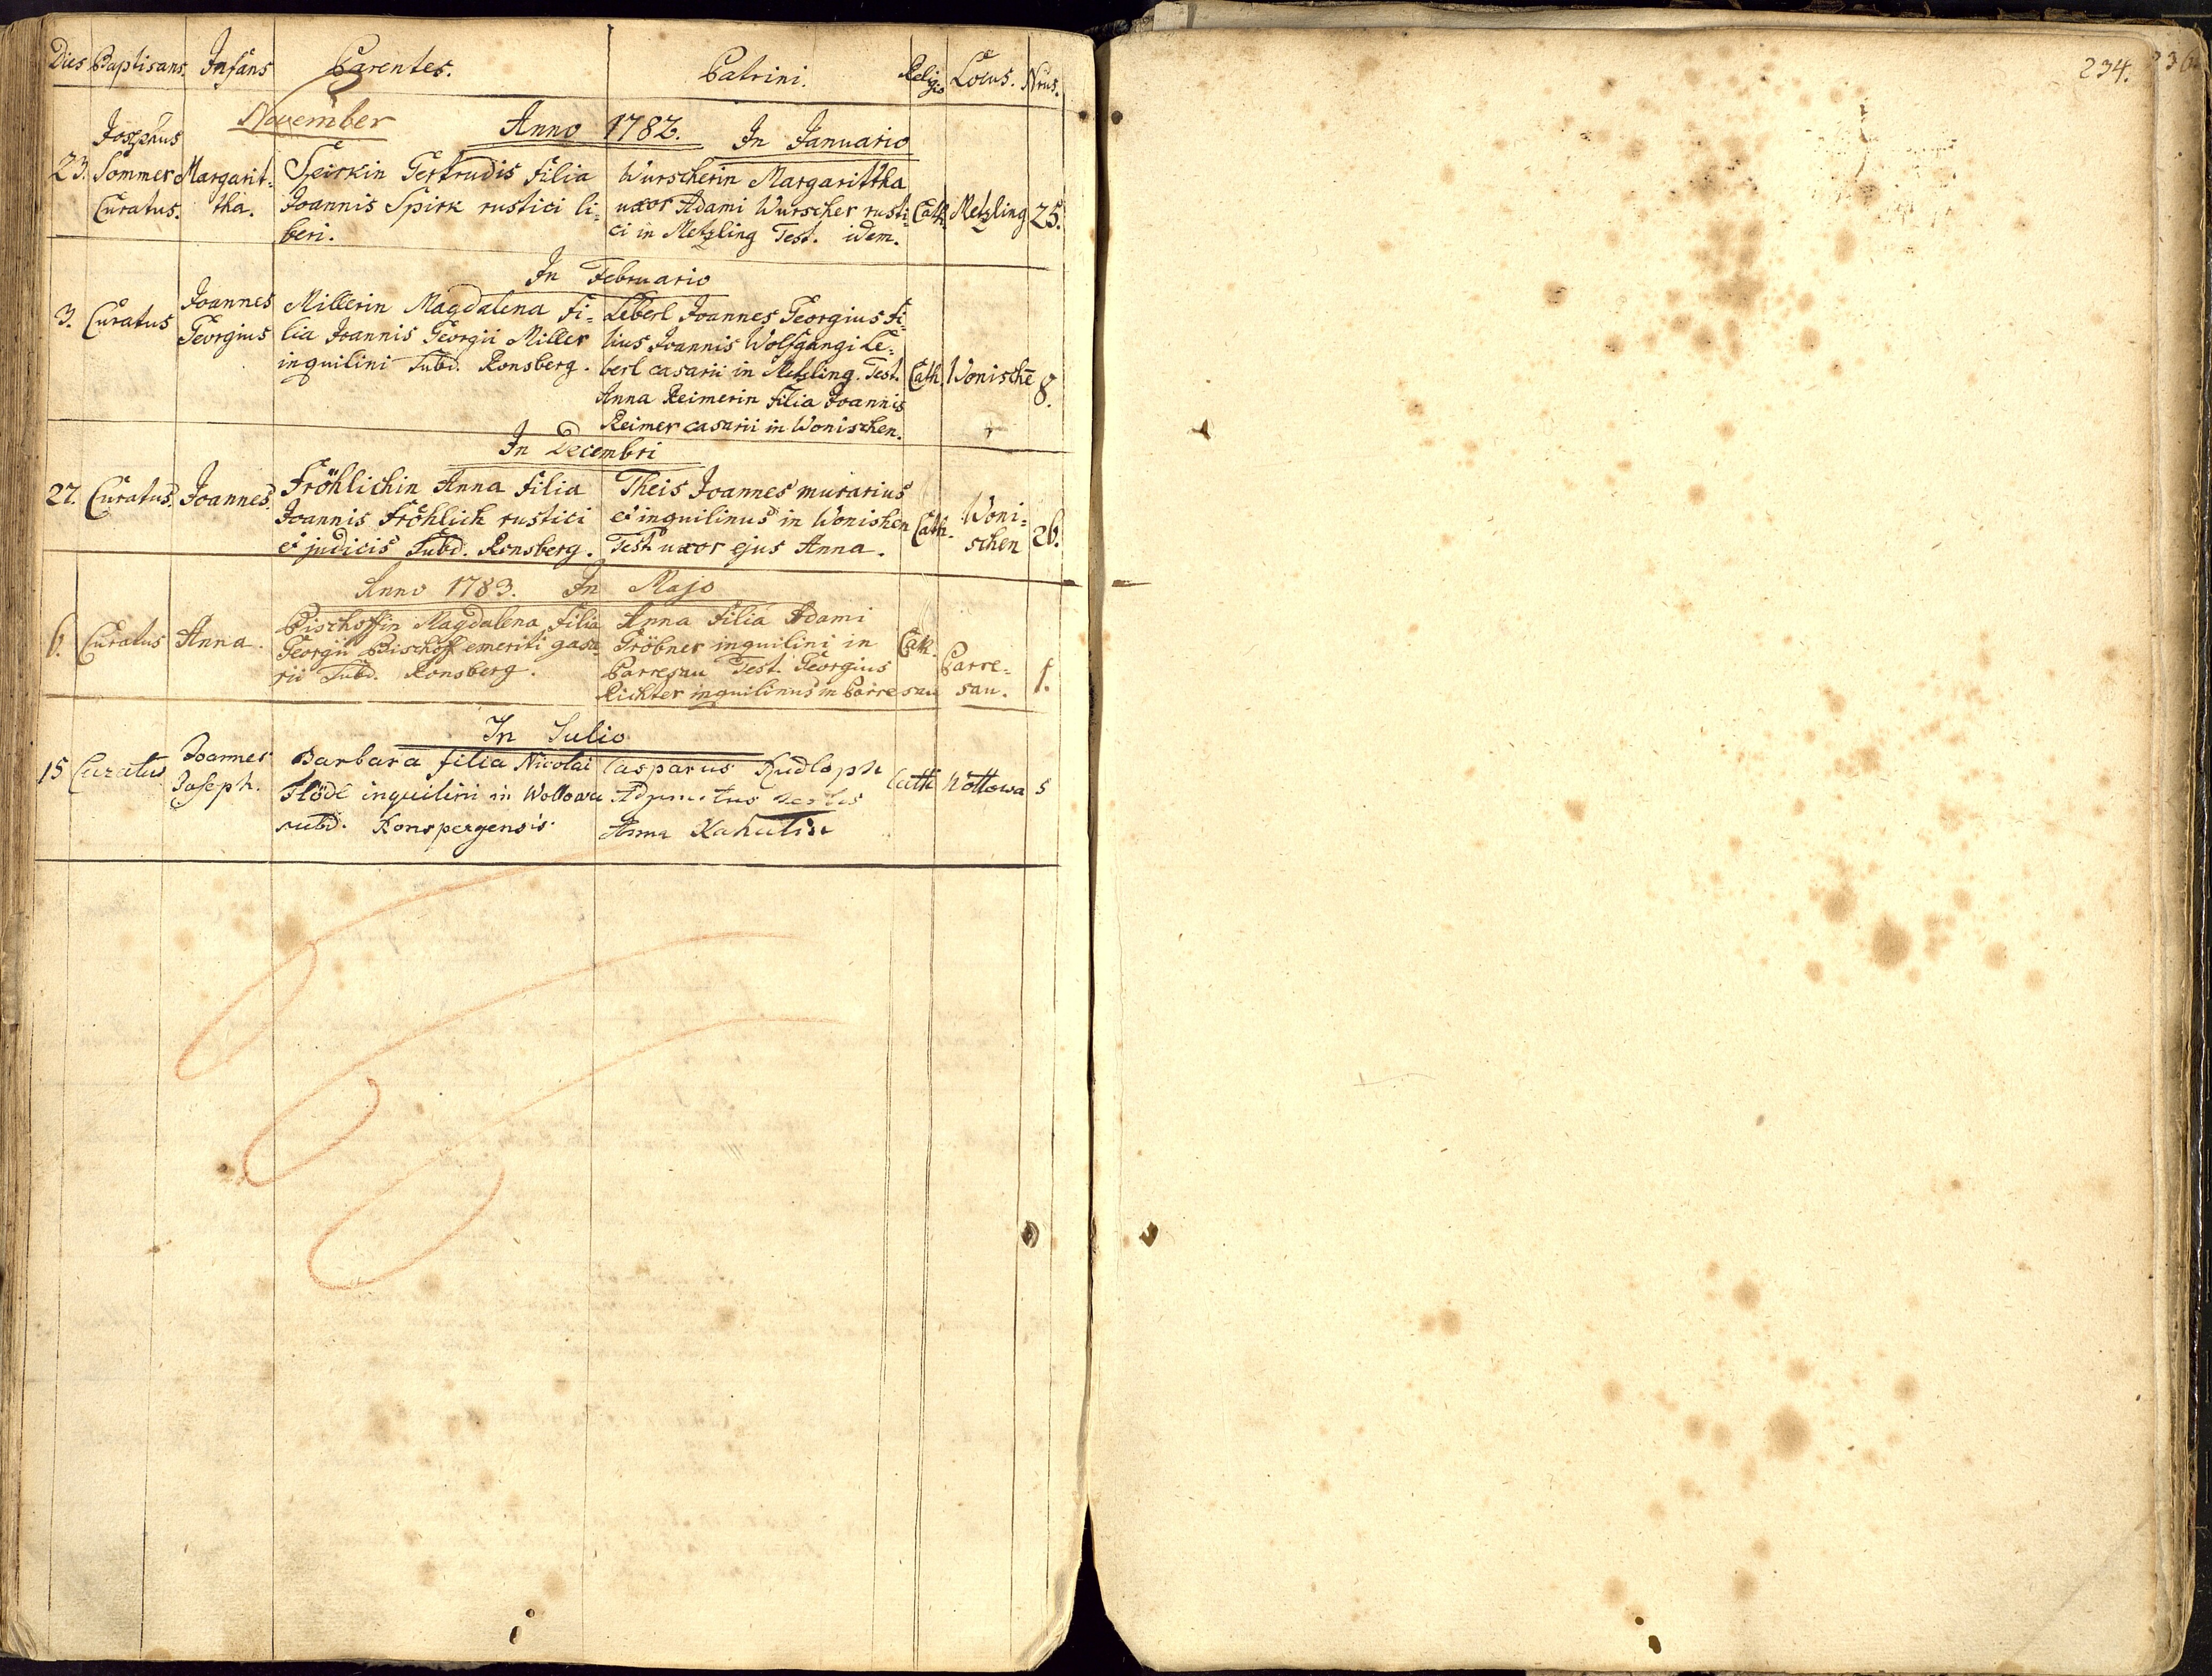 Dies Baptisans. Infans Parentes. Patrini. Religio Locus. Nrus.
November Anno 1782. In Januario
23. Josephus Sommer Curatus. Margarit=
tha.
Spirkin Gertrudis Filia
Joannis Spirk rustici li=
beri.
Wurscherin Margarittha
uxor Adami Wurscher rusti=
ci in Metzling Test. idem.
Cath. Metzling 25.
In Februario
3. Curatus Joannes
Georgius
Millerin Magdalena Fi=
lia Joannis Georgii Miller
inquilini Subd. Ronsberg.
Leberl Joannes Georgius Fi=
lius Joannis Wolfgangi Le=
berl casarii in Metzling. Test.
Anna Reimerin Filia Joannis
Reimer casarii in Wonischen.
Cath. Wonische 8.
In Decembri
27. Curatus. Joannes.
Fröhlichin Anna Filia
Joannis Fröhlich rustici
et judicis Subd. Ronsberg.
Theis Joannes murarius
et inquilinus in Wonishen
Test. uxor ejus Anna.
Cath. Woni=
schen 26.
Anno 1783. In Majo
6. Curatus Anna.
Bischoffin Magdalena Filia
Georgii Bischoff emeriti gasa=
rii Subd. Ronsberg.
Anna Filia Adami
Gröbner inquilini in
Parresau Test. Georgius
Richter inquilinus in Parresau
Cath. Parre=
sau. 1.
In Julio
15 Curatus Joannes
Joseph.
Barbara filia Nicolai
Flödl inquilini in Wottowa
subd. Ronspergensis.
Casparus Rudloph
Anna
Cath Wottowa 5
234.